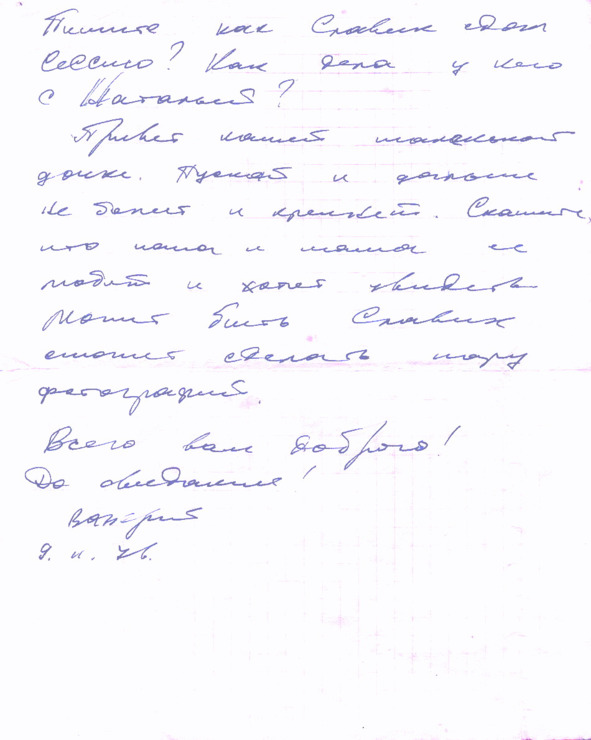 Пишите как Славик сдал
сессию? Как дела у него
с Натальей?
Привет нашей маленькой
дочке. Пускай и дальше
не болеет и крепнет. Скажите,
что папа и мама ее
любят и хотят увидеть.
Может быть Славик
сможет сделать пару
фотографий.
Всего вам доброго!
До свидания!
Валерий